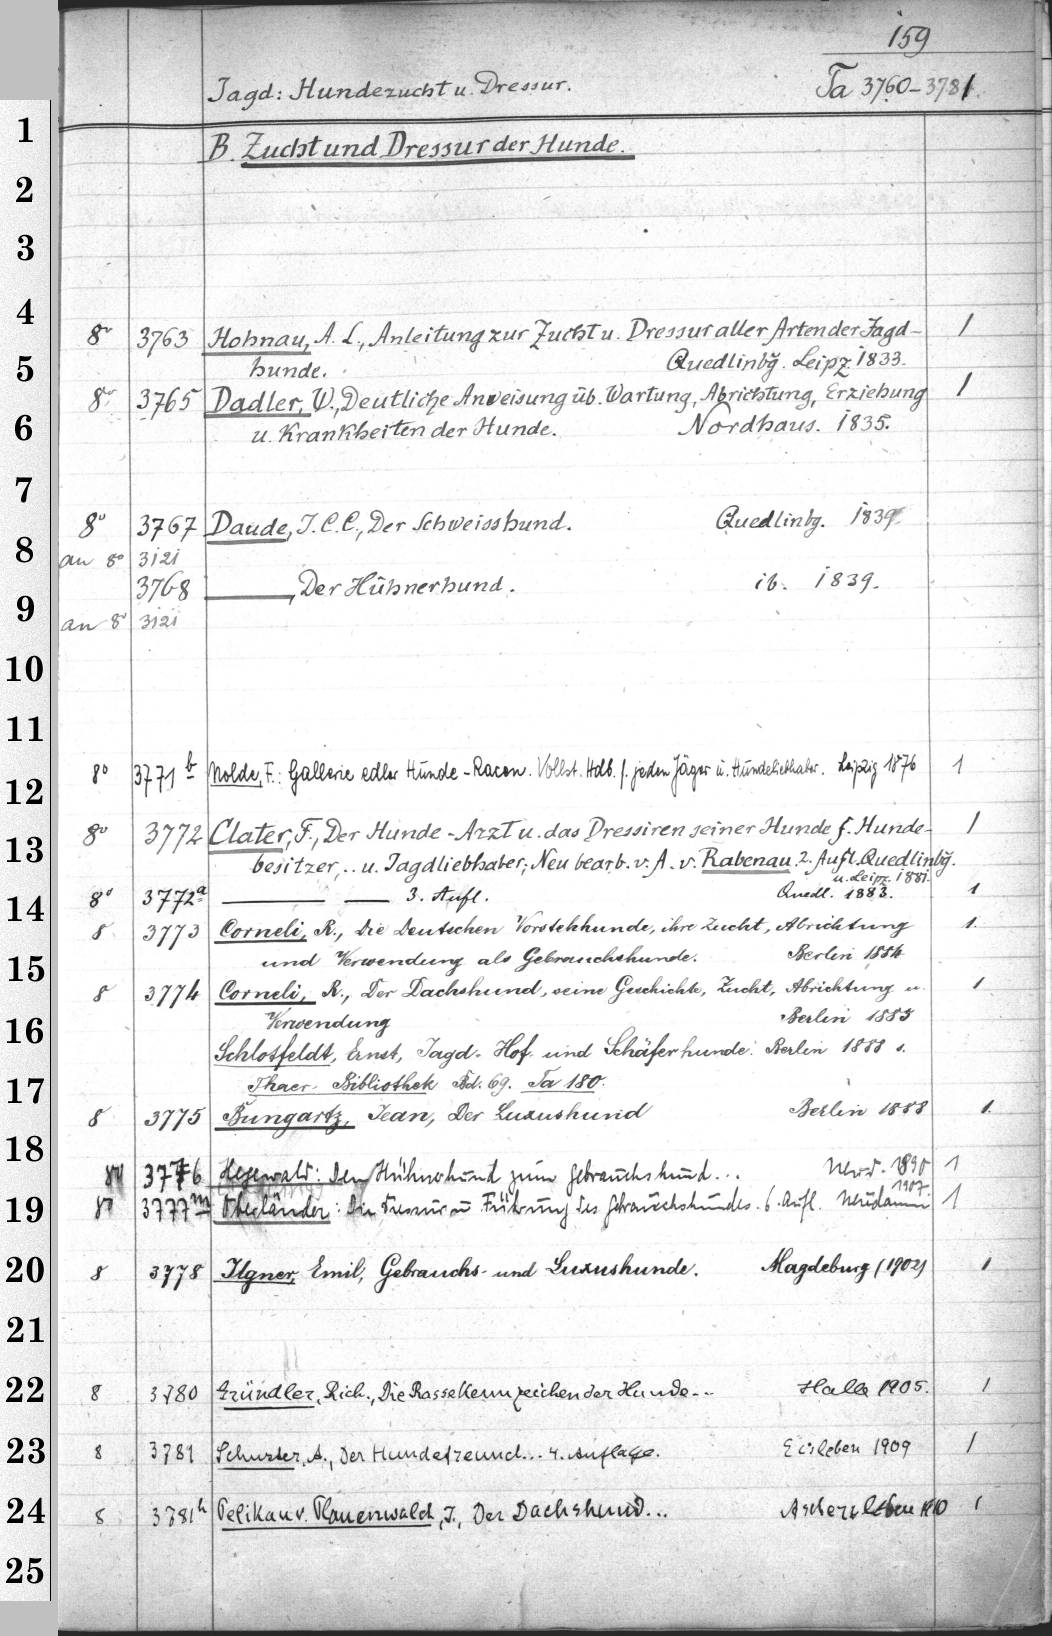 159
Jagd: Hundezucht u. Dressur. Ta 3760-3781
1
B. Zucht und Dressur der Hunde.
2
3
4
8° 3763 Hohnau, A. L., Anleitung zur Zucht u. Dressur aller Arten der Jagd- 1
5
hunde. Quedlinbg. Leipz. 1833.
8° 3765 Dadler, W., Deutliche Anweisung üb. Wartung, Abrichtung, Erziehung 1
6
u. Krankheiten der Hunde. Nordhaus. 1835.
7
8° 3767 Daude, J. C. C., Der Schweisshund. Quedlinbg. 1839
8
an 8° 3121
3768 ———, Der Hühnerhund. ib. 1839.
9
an 8° 3121
10
11
8° 3771 b Nolde, F.: Gallerie edler Hunde-Racen. Vollst. Hdb. f. jeden Jäger u. Hundeliebhaber. Leipzig 1876 1
12
8° 3772 Clater, F., Der Hunde-Arzt u. das Dressiren seiner Hunde f. Hunde- 1
13
besitzer, .. u. Jagdliebhaber; Neu bearb. v. A. v. Rabenau. 2. Aufl. Quedlinbg.
u. Leipz. 1881.
8° 3772a ——— —— 3. Aufl. Quedl. 1883. 1
14
8 3773 Corneli, R., Die Deutschen Vorstehhunde, ihre Zucht, Abrichtung 1.
und Verwendung als Gebrauchshunde. Berlin 1884
15
8 3774 Corneli, R., Der Dachshund, seine Geschichte, Zucht, Abrichtung u. 1
16
Verwendung Berlin 1885
Schlotfeldt, Ernst, Jagd- Hof und Schäferhunde. Berlin 1888 s.
17
Thaer-Bibliothek Bd. 69. Ta 180.
8 3775 Bungartz, Jean, Der Luxushund Berlin 1888 1.
18
3776 Hegewald: Den Hühnerhund zum Gebrauchshund... 1890 1
1907.
19
8° 3777m Oberländer: Die Dressur u Führung des Gebrauchshundes. 6. Aufl. Neudamm 1
20
8 3778 Ilgner, Emil, Gebrauchs- und Luxushunde. Magdeburg (1902) 1
21
22
8 3780 Gründler, Rich., Die Rassekennzeichen der Hunde... Halle 1905. 1
23
8 3781 Schuster, A., Der Hundefreund... 4. Auflage. Eisleben 1909 1
24
8 3781h Pelikan v. Plauenwald, J., Der Dachshund... Aschersleben 1910 1
25